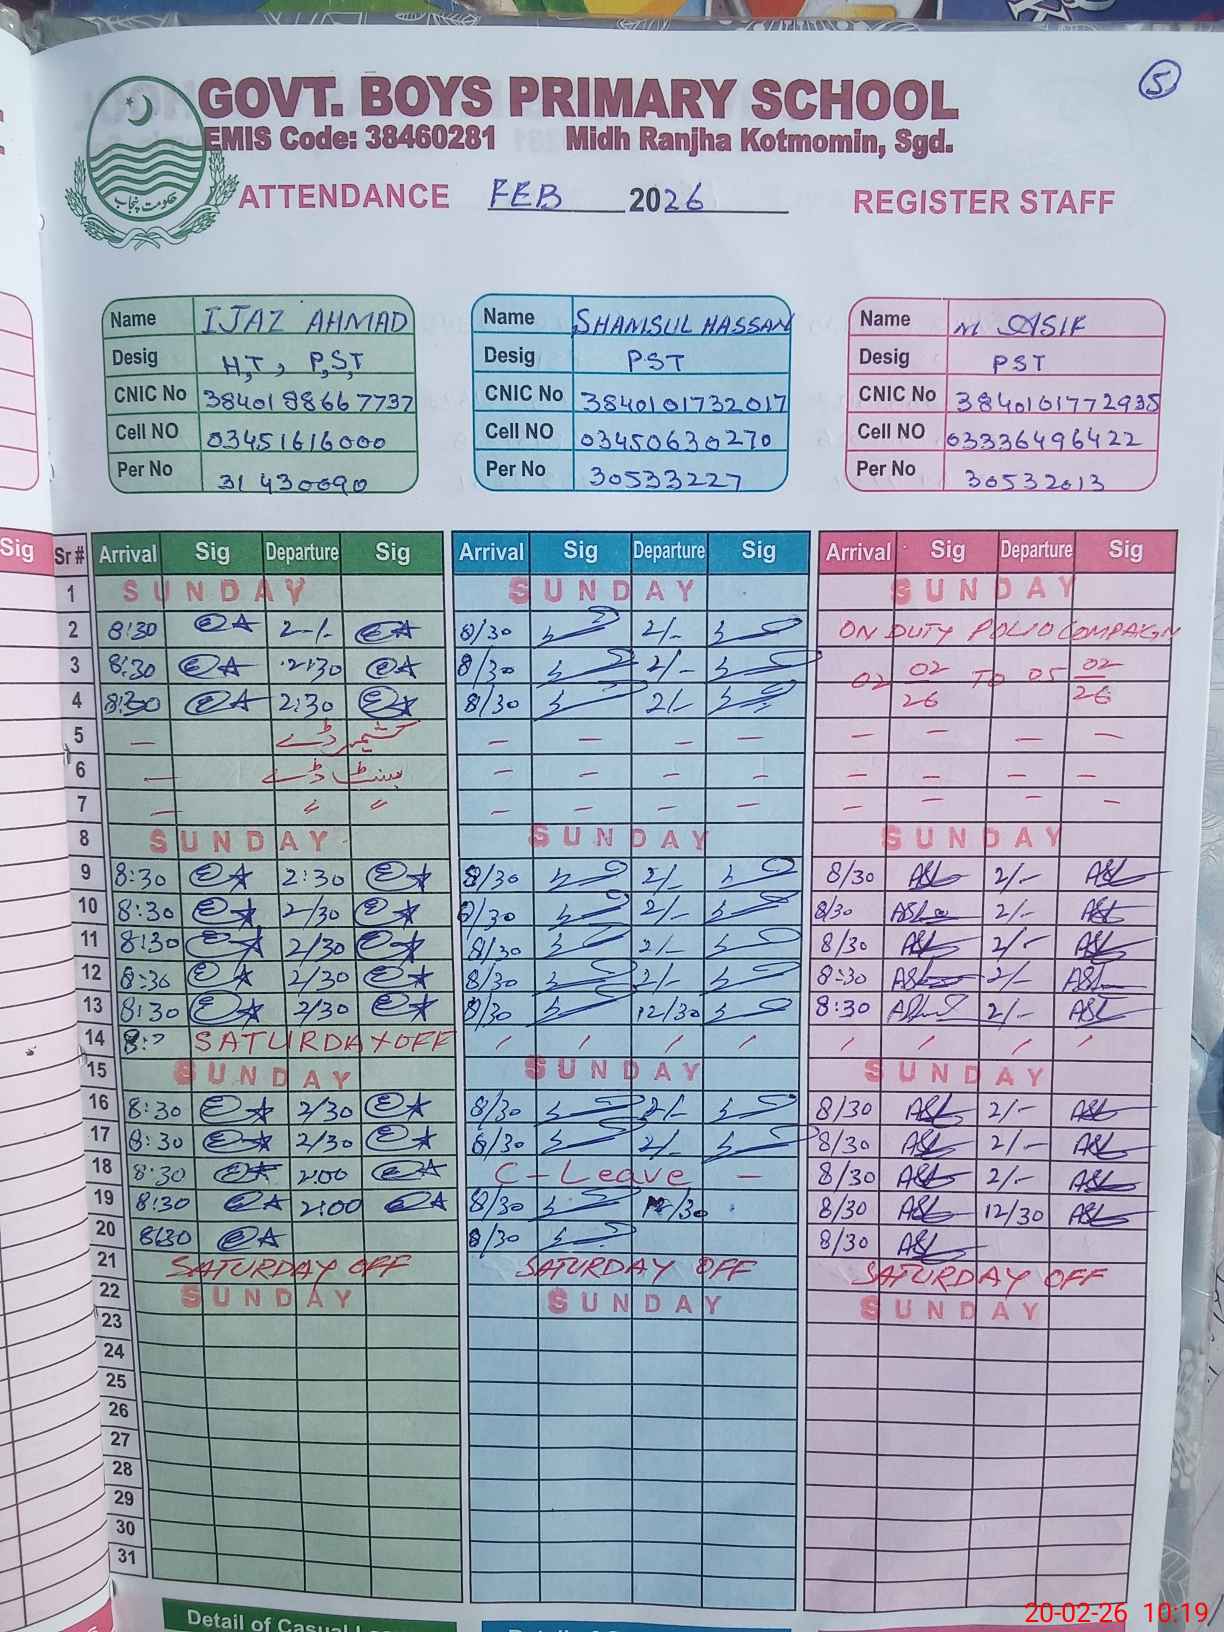 5
GOVT. BOYS PRIMARY SCHOOL
EMIS Code: 38460281 Midh Ranjha Kotmomin, Sgd.
حکومت پنجاب
ATTENDANCE FEB 2026 REGISTER STAFF
Name IJAZ AHMAD Name SHAMSUL HASSAN Name M ASIF
Desig H,T, P,S,T Desig PST Desig PST
CNIC No 3840198667737 CNIC No 3840101732017 CNIC No 3840101772935
Cell NO 03451616000 Cell NO 03450630270 Cell NO 03336496422
Per No 31430090 Per No 30533227 Per No 30532013
Sig Sr # Arrival Sig Departure Sig Arrival Sig Departure Sig Arrival Sig Departure Sig
1 SUNDAY SUNDAY SUNDAY
2 8:30 2-/- 8/30 2/- ON DUTY POLIO COMPAIGN
3 8:30 2:30 8/30 2/- 02 02/26 TO 05 02/26
4 8:30 2:30 8/30 2/-
5 — کشمیر ڈے — — — — — — — —
6 — بسنت ڈے — — — — — — — —
7 — " " — — — — — — — —
8 SUNDAY SUNDAY SUNDAY
9 8:30 2:30 8/30 2/- 8/30 2/-
10 8:30 2/30 8/30 2/- 8/30 2/-
11 8:30 2/30 8/30 2/- 8/30 2/-
12 8:30 2/30 8/30 2/- 8:30 2/-
13 8:30 2/30 8/30 12/30 8:30 2/-
14 8:? SATURDAY OFF / / / / / / / /
15 SUNDAY SUNDAY SUNDAY
16 8:30 2/30 8/30 2/- 8/30 2/-
17 8:30 2/30 8/30 2/- 8/30 2/-
18 8:30 2:00 C-Leave — 8/30 2/-
19 8:30 2:00 8/30 12/30 8/30 12/30
20 8:30 8/30 8/30
21 SATURDAY OFF SATURDAY OFF SATURDAY OFF
22 SUNDAY SUNDAY SUNDAY
23
24
25
26
27
28
29
30
31
Detail of Casual
20-02-26 10:19